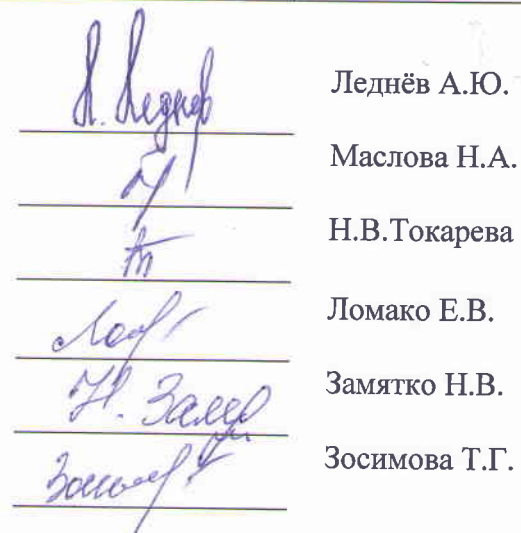 А. Леднёв Леднёв А.Ю.
Маслова Н.А.
Н.В.Токарева
Ломако Е.В.
Н. Замя Замятко Н.В.
Зосимова Т.Г.